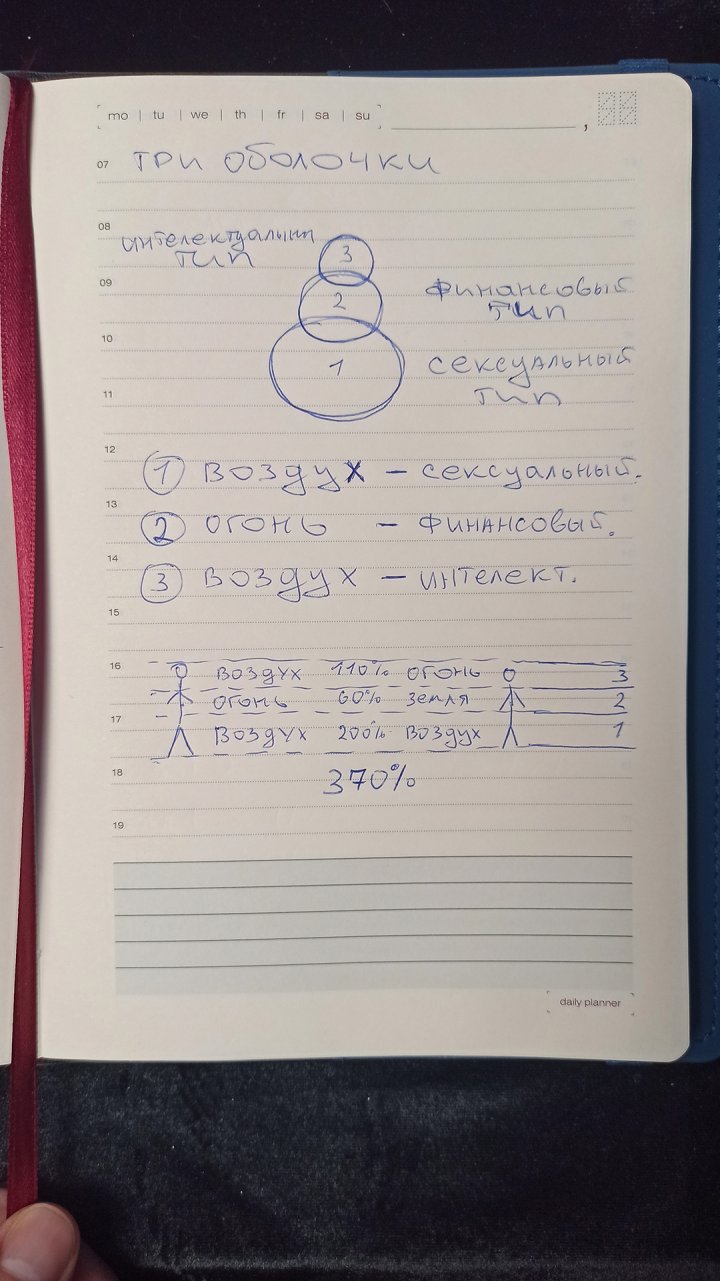 mo | tu | we | th | fr | sa | su ,
07 три оболочки
08
интелектуальний
тип
3
09
2
финансовый
тип
10
1
сексуальный
тип
11
12
1 воздух – сексуальный.
13
2 огонь – финансовый.
14
3 воздух – интелект.
15
16
воздух 110% огонь 3
огонь 60% земля 2
17
воздух 200% воздух 1
18
370%
19
daily planner